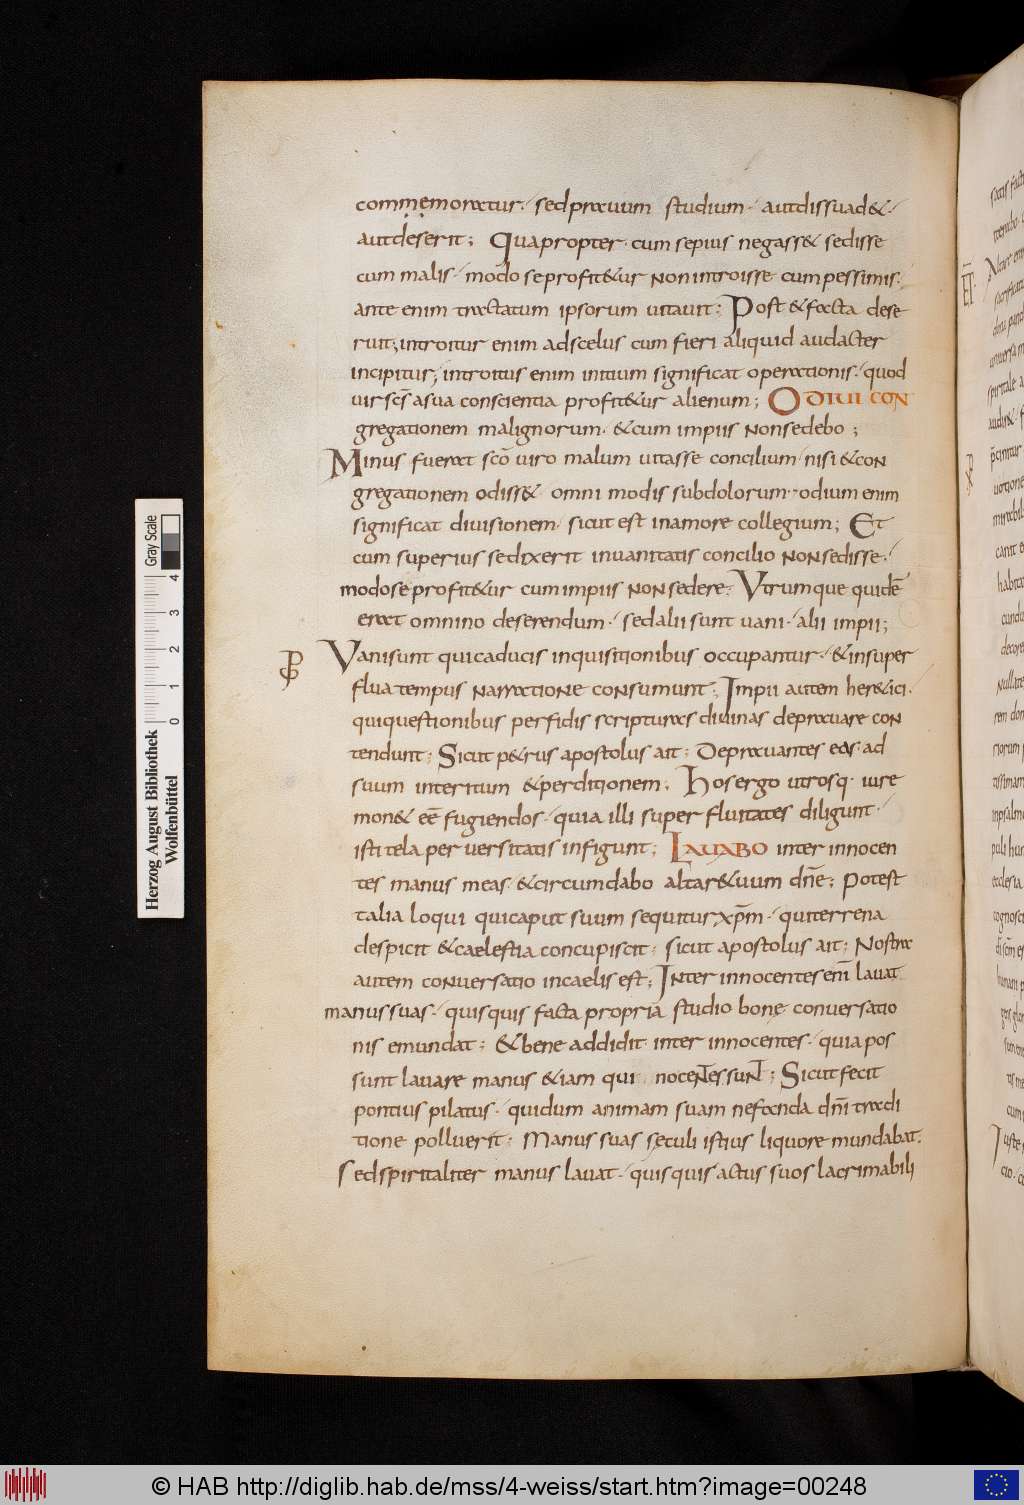 commemoratur· sed prauum studium· aut dissuad&·
aut deserit; Quapropter· cum sepius negass& sedisse
cum malis· modo se profit&ur non introisse cum pessimis·
ante enim tractatum ipsorum uitauit; Post & facta dese
ruit; introitur enim ad scelus cum fieri aliquid audacter
incipitur; introitus enim initium significat operationis· quod
uir sc̄s a sua conscientia profit&ur alienum; ODIUI CON
gregationem malignorum· & cum impiis non sedebo;
Minus fuerat sc̄o uiro malum uitasse concilium· nisi & con
gregationem odiss& omni modis subdolorum· odium enim
significat diuisionem· sicut est in amore collegium; Et
cum superius se dixerit in uanitatis concilio non sedisse·
modo se profit&ur cum impiis non sedere· Vtrumque quidē
erat omnino deserendum· sed alii sunt uani· alii impii;
Vani sunt qui caducis inquisitionibus occupantur· & insuper
flua tempus narratione consumunt; Impii autem her&ici·
qui questionibus perfidis scripturas diuinas deprauare con
tendunt; Sicut p&rus apostolus ait; Deprauantes eas ad
suum interitum & perditionem; Hos ergo utrosq· iure
mon& eē fugiendos· quia illi superfluitates diligunt·
isti tela peruersitatis infigunt; LAUABO inter innocen
tes manus meas· & circumdabo altar& uum dn̄e; Potest
talia loqui qui caput suum sequitur xp̄m· qui terrena
despicit & caelestia concupiscit; sicut apostolus ait; Nostra
autem conuersatio in caelis est; Inter innocentes eni̅ lauat
manus suas· quisquis facta propria studio bone conuersatio
nis emundat; & bene addidit inter innocentes· quia pos
sunt lauare manus & iam qui nocentes sunt; Sicut fecit
pontius pilatus· qui dum animam suam nefanda dn̄i tradi
tione pollueret; Manus suas seculi istius liquore mundabat·
Sed spiritaliter manus lauat· quisquis actus suos lacrimabili
Gray Scale
0 1 2 3 4
Herzog August Bibliothek
Wolfenbüttel
© HAB http://diglib.hab.de/mss/4-weiss/start.htm?image=00248